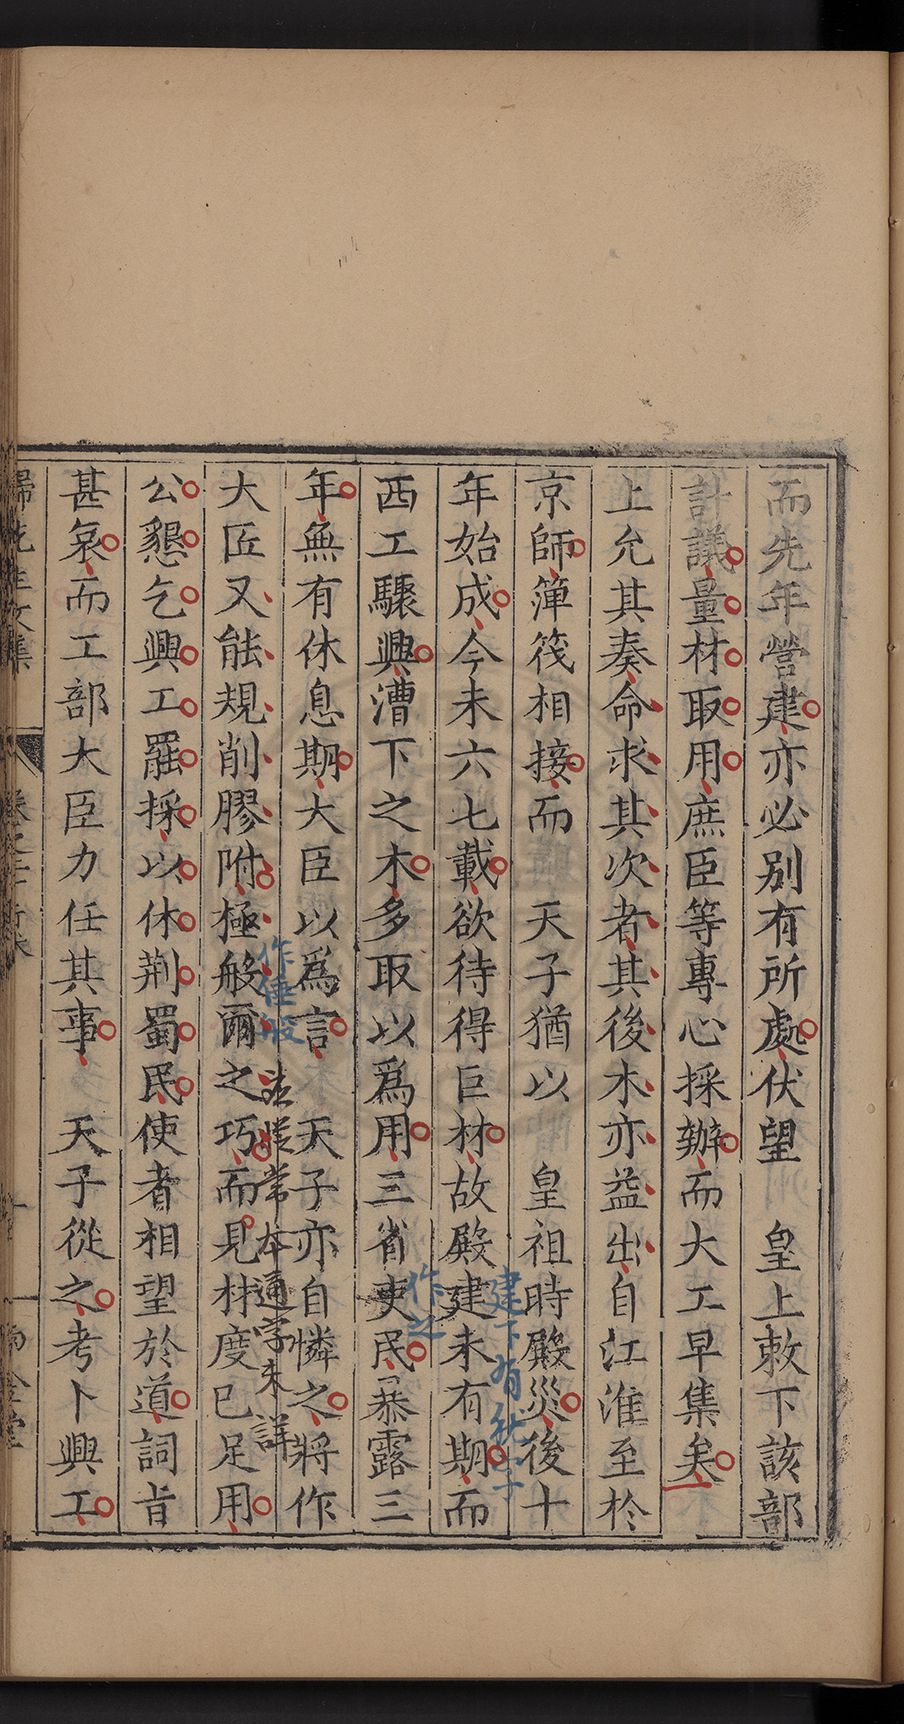 而先年營建亦必別有所處伏望　皇上敕下該部
計議量材取用庶臣等專心採辦而大工早集矣
上允其奏命求其次者其後木亦益出自江淮至於
京師簰筏相接而　天子猶以　皇祖時殿災後十
年始成今未六七載欲待得巨材故殿建未有期而
建下有秋字
西工驟興漕下之木多取以爲用三省吏民暴露三
作之
年無有休息期大臣以爲言　天子亦自憐之將作
作倕般
法 常本通學未詳
大匠又能規削膠附極般爾之巧而見材度已足用
公懇乞興工罷採以休荆蜀民使者相望於道詞旨
甚哀而工部大臣力任其事　天子從之考卜興工